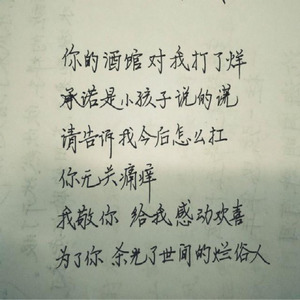 你的酒馆对我打了烊
承诺是小孩子说的谎
请告诉我今后怎么扛
你无关痛痒
我敬你 给我感动欢喜
为了你 杀光了世间的烂俗人